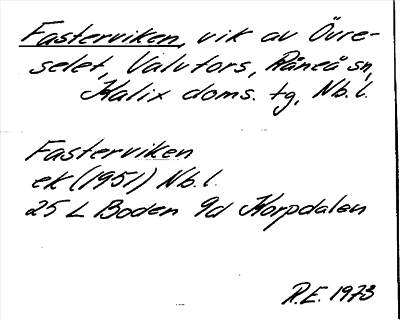 Fasterviken, vik av Övre-
selet, Valvfors, Råneå sn,
Kalix doms. tg, Nb. l.
Fasterviken
ek (1951) Nb. l.
25 L Boden 9d Korpdalen
R.E. 1973